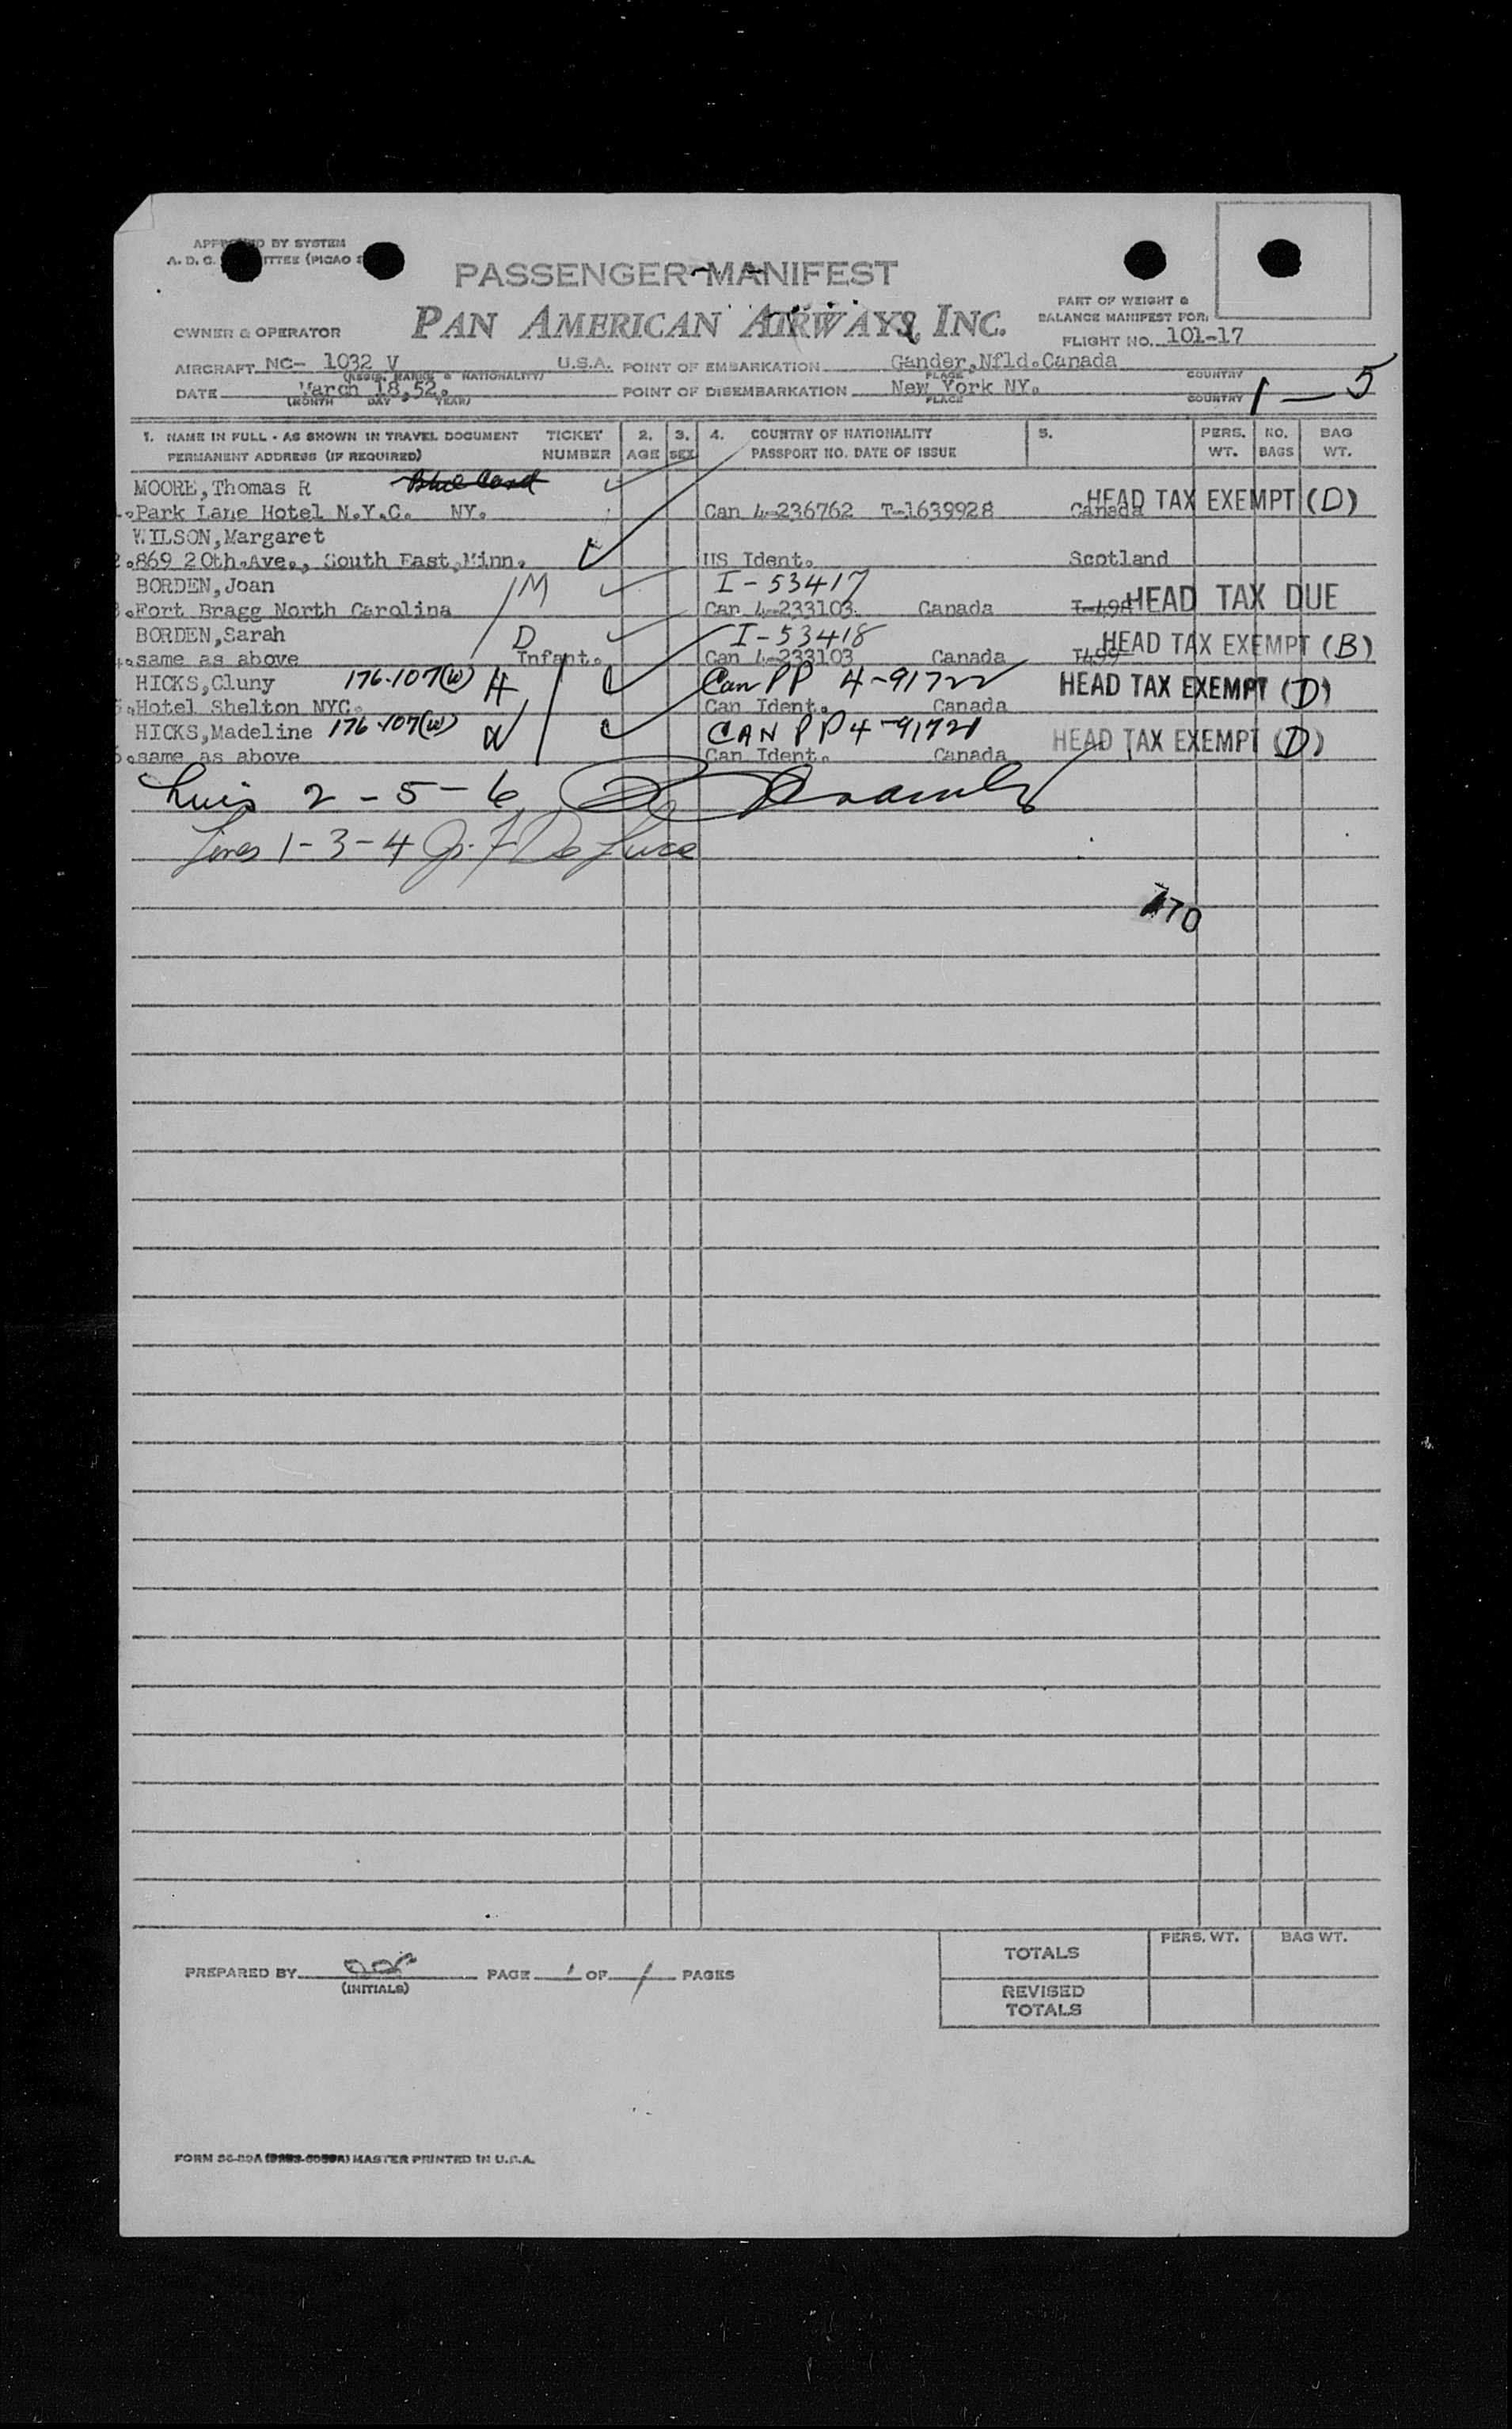 BY SYSTEM
A. D. C.
PASSENGER MANIFEST
PART OF WEIGHT &
BALANCE MANIFEST FOR:
OWNER & OPERATOR PAN AMERICAN AIRWAYS, INC.
FLIGHT NO. 101-17
AIRCRAFT NC- 1032 V U.S.A. POINT OF EMBARKATION Gander,Nfld.Canada
PLACE COUNTRY
DATE March 18,52. POINT OF DISEMBARKATION New York NY.
(MONTH DAY YEAR) PLACE COUNTRY 1 — 5
1. NAME IN FULL - AS SHOWN IN TRAVEL DOCUMENT TICKET 2. 3. 4. COUNTRY OF NATIONALITY 5. PERS. NO. BAG
PERMANENT ADDRESS (IF REQUIRED) NUMBER AGE SEX PASSPORT NO. DATE OF ISSUE WT. BAGS WT.
MOORE,Thomas R Blue Card
Park Lane Hotel N.Y.C. NY. Can 4-236762 T-1639928 Canada HEAD TAX EXEMPT (D)
WILSON,Margaret
2.869 20th.Ave., South East,Minn. US Ident. Scotland
BORDEN,Joan M I-53417
3.Fort Bragg North Carolina Can 4-233103 Canada HEAD TAX DUE
BORDEN,Sarah D I-53418
4.same as above Infant. Can 4-233103 Canada T499 HEAD TAX EXEMPT (B)
HICKS,Cluny 176-107(W) H Can PP 4-91722 HEAD TAX EXEMPT (D)
5.Hotel Shelton NYC. Can Ident. Canada
HICKS,Madeline 176-107(W) W CAN PP 4-91721 HEAD TAX EXEMPT (D)
same as above Can Ident. Canada
2 - 5 - 6
Lines 1-3-4 J. F. De Luca
170
PERS. WT. BAG WT.
TOTALS
PREPARED BY PAGE 1 OF 1 PAGES
(INITIALS)
REVISED
TOTALS
MASTER PRINTED IN U.S.A.